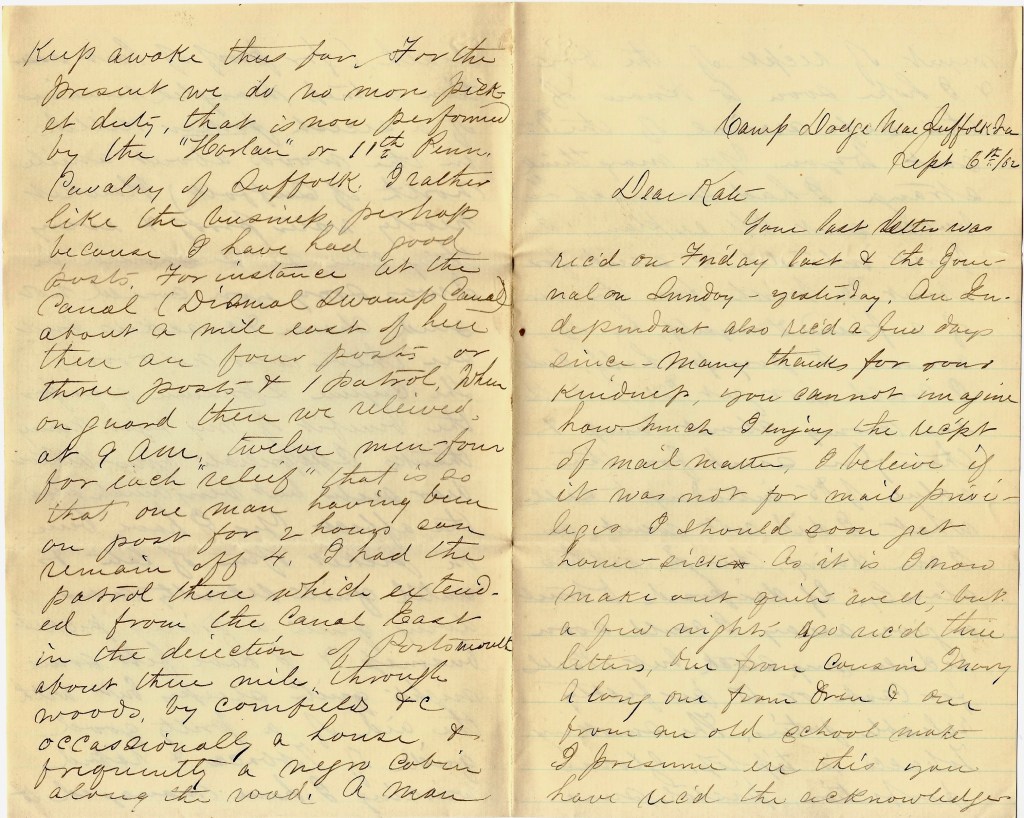 Keep awake thus far, For the
present we do no more pick-
et duty, that is now performed
by the "Harlan" or 11th Penn.
Cavalry of Suffolk. I rather
like the business, perhaps
because I have had good
posts. For instance at the
Canal (Dismal Swamp Canal)
about a mile east of here
there are four posts or
three posts & 1 patrol. When
on guard there we releived
at 9 Am, twelve men-four
for each "releif" that is so
that one man having been
on post for 2 hours can
remain off 4. I had the
patrol there which extend-
ed from the Canal East
in the direction of Portsmouth
about three mile, through
woods, by cornfields &c
occassionally a house, &
frequently a negro cabin
along the road. A man
Camp Dodge Near Suffolk Va
Sept 6th/62
Dear Kate
Your last letter was
rec'd on Friday last & the Jour-
nal on Sunday - yesterday. An In-
dependant also rec'd a few days
since - many thanks for your
kindness, you cannot imagine
how much I enjoy the recipt
of mail matter, I beleive if
it was not for mail privi-
leges I should soon get
home-sick. As it is I now
make out quite well; but
a few nights ago rec'd three
letters, one from Cousin Mary
A long one from Oren & one
from an old school mate
I presume ere this you
have rec'd the acknowledge-